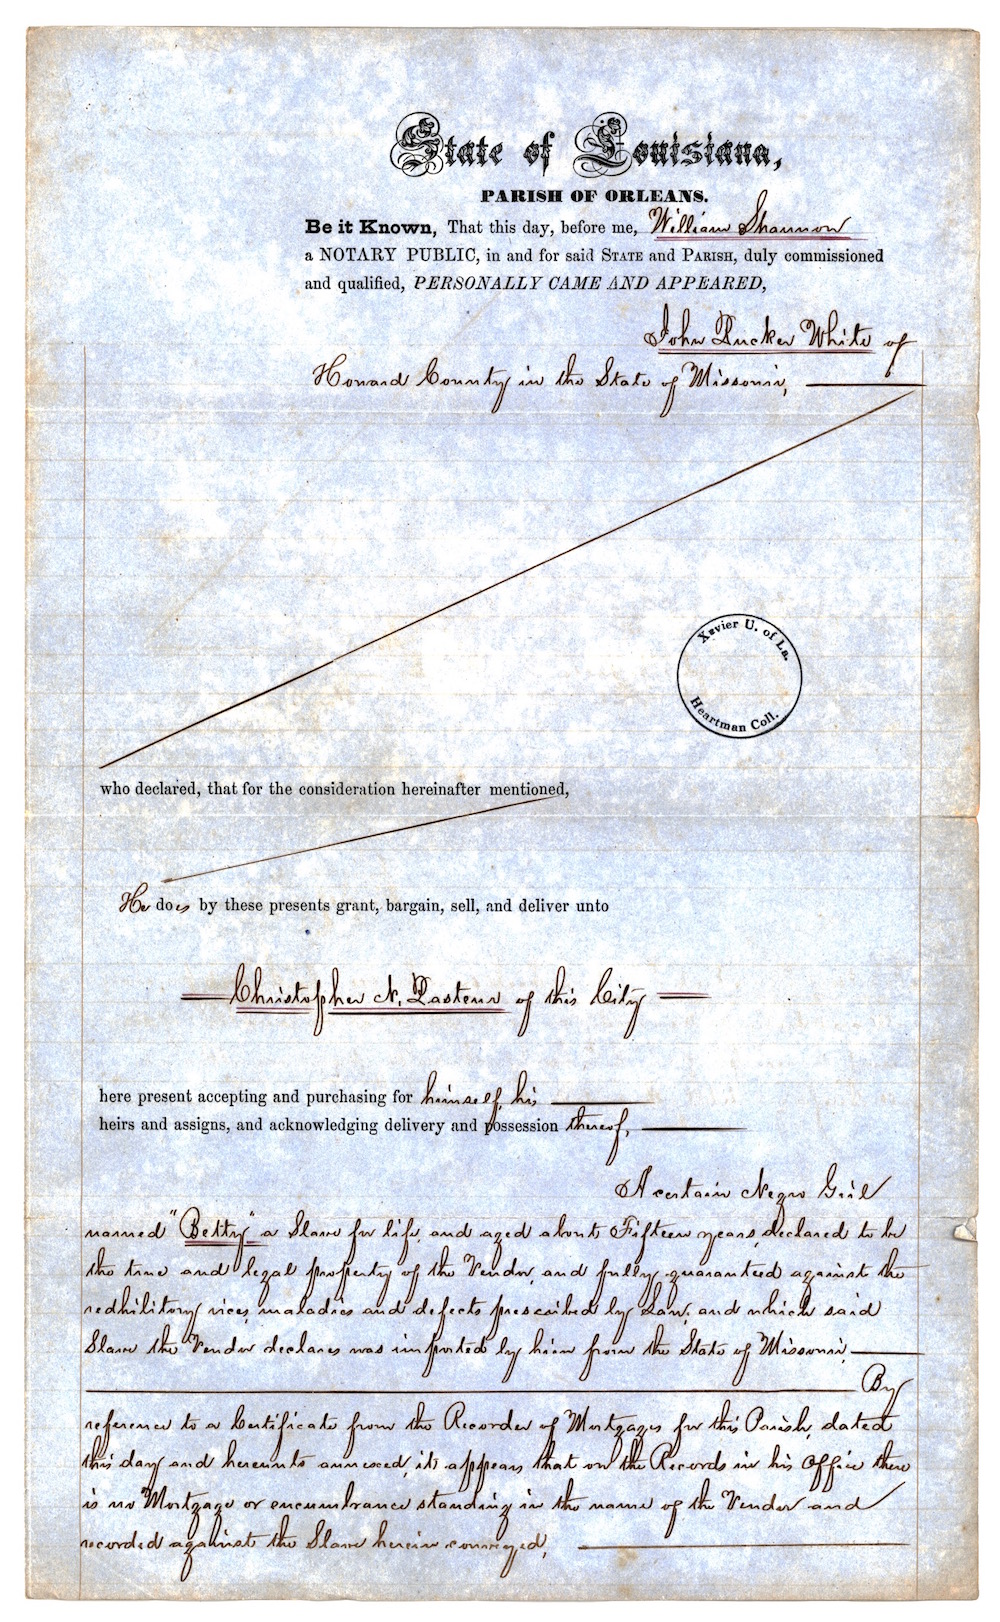 State of Louisiana,
PARISH OF ORLEANS.
Be it Known, That this day, before me, William Shannon
a NOTARY PUBLIC, in and for said STATE and PARISH, duly commissioned
and qualified, PERSONALLY CAME AND APPEARED,
John Tucker White of
Howard County in the State of Missouri,
Xavier U. of La.
Heartman Coll.
who declared, that for the consideration hereinafter mentioned,
He does by these presents grant, bargain, sell, and deliver unto
Christopher N. Pasteur of this City
here present accepting and purchasing for himself, his
heirs and assigns, and acknowledging delivery and possession thereof,
A certain Negro Girl
named "Betty" a Slave for life, and aged about Fifteen years, declared to be
the true and legal property of the Vendor, and fully guaranteed against the
redhibitory vices, maladies and defects prescribed by Law, and which said
Slave the Vendor declares was imported by him from the State of Missouri,
By
reference to a Certificate from the Recorder of Mortgages for this Parish, dated
this day and hereunto annexed, it appears that on the Records in his Office there
is no Mortgage or encumbrance standing in the name of the Vendor and
recorded against the Slave herein conveyed,